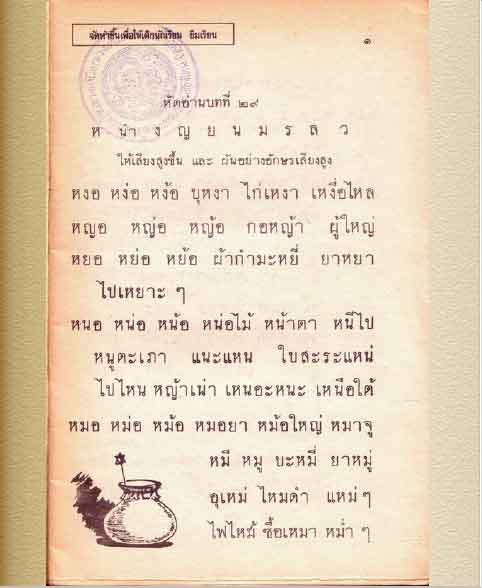 จัดทำขึ้นเพื่อให้เด็กนักเรียน ยืมเรียน
๑
หัดอ่านบทที่ ๒๙
ห นำ ง ญ ย น ม ร ล ว
ให้เสียงสูงขึ้น และ ผันอย่างอักษรเสียงสูง
หงอ หง่อ หง้อ บุหงา ไก่เหงา เหงื่อไหล
หญอ หญ่อ หญ้อ กอหญ้า ผู้ใหญ่
หยอ หย่อ หย้อ ผ้ากำมะหยี่ ยาหยา
ไปเหยาะ ๆ
หนอ หน่อ หน้อ หน่อไม้ หน้าตา หนีไป
หนูตะเภา แนะแหน ใบสะระแหน่
ไปไหน หญ้าเน่า เหนอะหนะ เหนือใต้
หมอ หม่อ หม้อ หมอยา หม้อใหญ่ หมาจู
หมี หมู บะหมี่ ยาหมู่
อุเหม่ ไหมดำ แหม่ๆ
ไฟไหม้ ซื้อเหมา หม่ำ ๆ